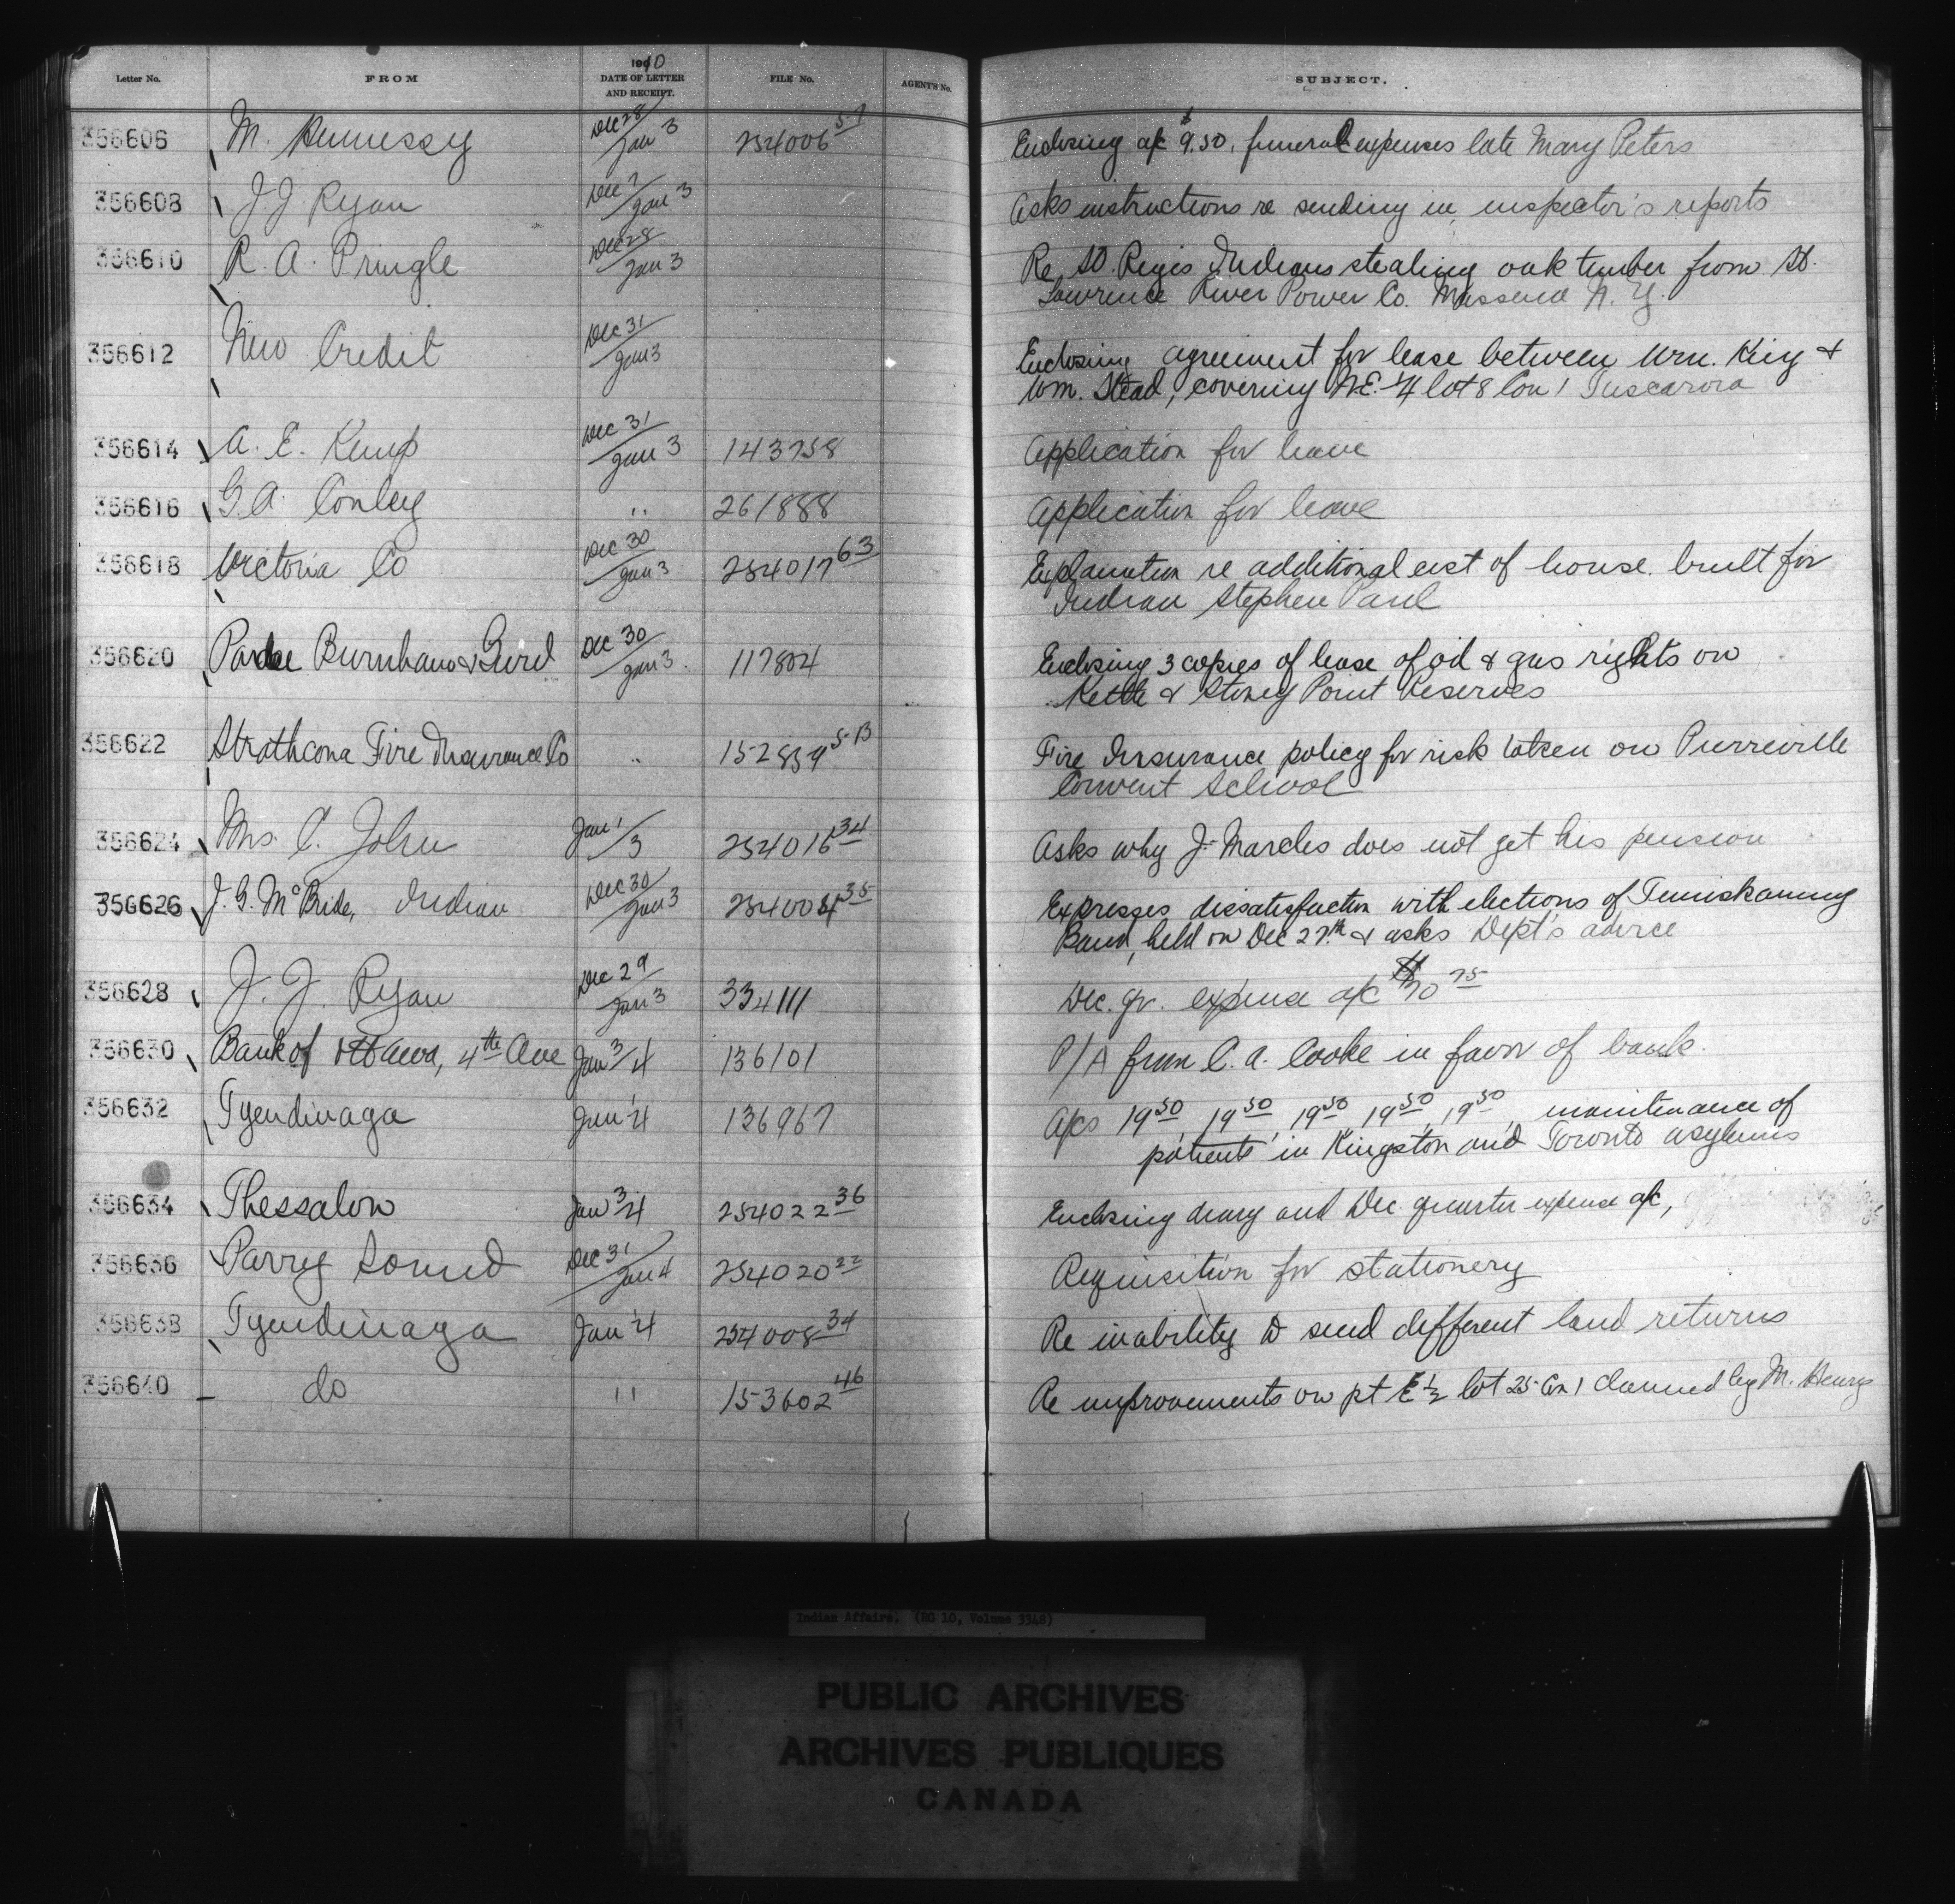 Letter No. FROM 1910 DATE OF LETTER AND RECEIPT. FILE No. AGENT'S No. SUBJECT.
356606 M. Hennessy Dec 28/Jan 3 254006 5-7 Enclosing a/c $9.50, funeral expenses late Mary Peters
356608 J J Ryan Dec 7/Jan 3 Asks instructions re sending in inspector's reports
356610 R. A. Pringle Dec 28/Jan 3 Re St. Regis Indians stealing oak timber from St.
Lawrence River Power Co. Massena N. Y.
356612 New Credit Dec 31/Jan 3 Enclosing agreement for lease between Wm. King &
Wm. Stead, covering N.E. 1/4 lot 8 Con 1 Tuscarora
356614 A. E. Kemp Dec 31/Jan 3 143758 Application for leave
356616 G. A. Conley " 261888 Application for leave
356618 Victoria Co Dec 30/Jan 3 254017 63 Explanation re additional cost of house built for
Indian Stephen Paul
356620 Pardee Burnham & Gurd Dec 30/Jan 3 117804 Enclosing 3 copies of lease of oil & gas rights on
Kettle & Stoney Point Reserves
356622 Strathcona Fire Insurance Co " 152859 5-13 Fire Insurance policy for risk taken on Pierreville
Convent School
356624 Mrs. C. John Jan 1/3 254016 34 Asks why J. Maracles does not get his pension
356626 J. G. McBride, Indian Dec 30/Jan 3 254004 35 Expresses dissatisfaction with elections of Temiskaming
Band, held on Dec 27th & asks Dept's advice
356628 J. J. Ryan Dec 29/Jan 3 334111 Dec. qr. expense a/c $70 75
356630 Bank of Ottawa, 4th Ave Jan 3/4 136101 P/A from C. A. Cooke in favor of bank.
356632 Tyendinaga Jan 4 136967 A/cs 19 50, 19 50, 19 50, 19 50, 19 50, maintenance of
patients in Kingston and Toronto asylums
356634 Thessalon Jan 3/4 254022 36 Enclosing diary and Dec quarter expense a/c,
356636 Parry Sound Dec 31/Jan 4 254020 22 Requisition for stationery
356638 Tyendinaga Jan 4 254008 34 Re inability to send different land returns
356640 do " 153602 46 Re improvements on pt E 1/2 lot 25 Con 1 claimed by M. Henry
Indian Affairs. (RG 10, Volume 3348)
PUBLIC ARCHIVES
ARCHIVES PUBLIQUES
CANADA